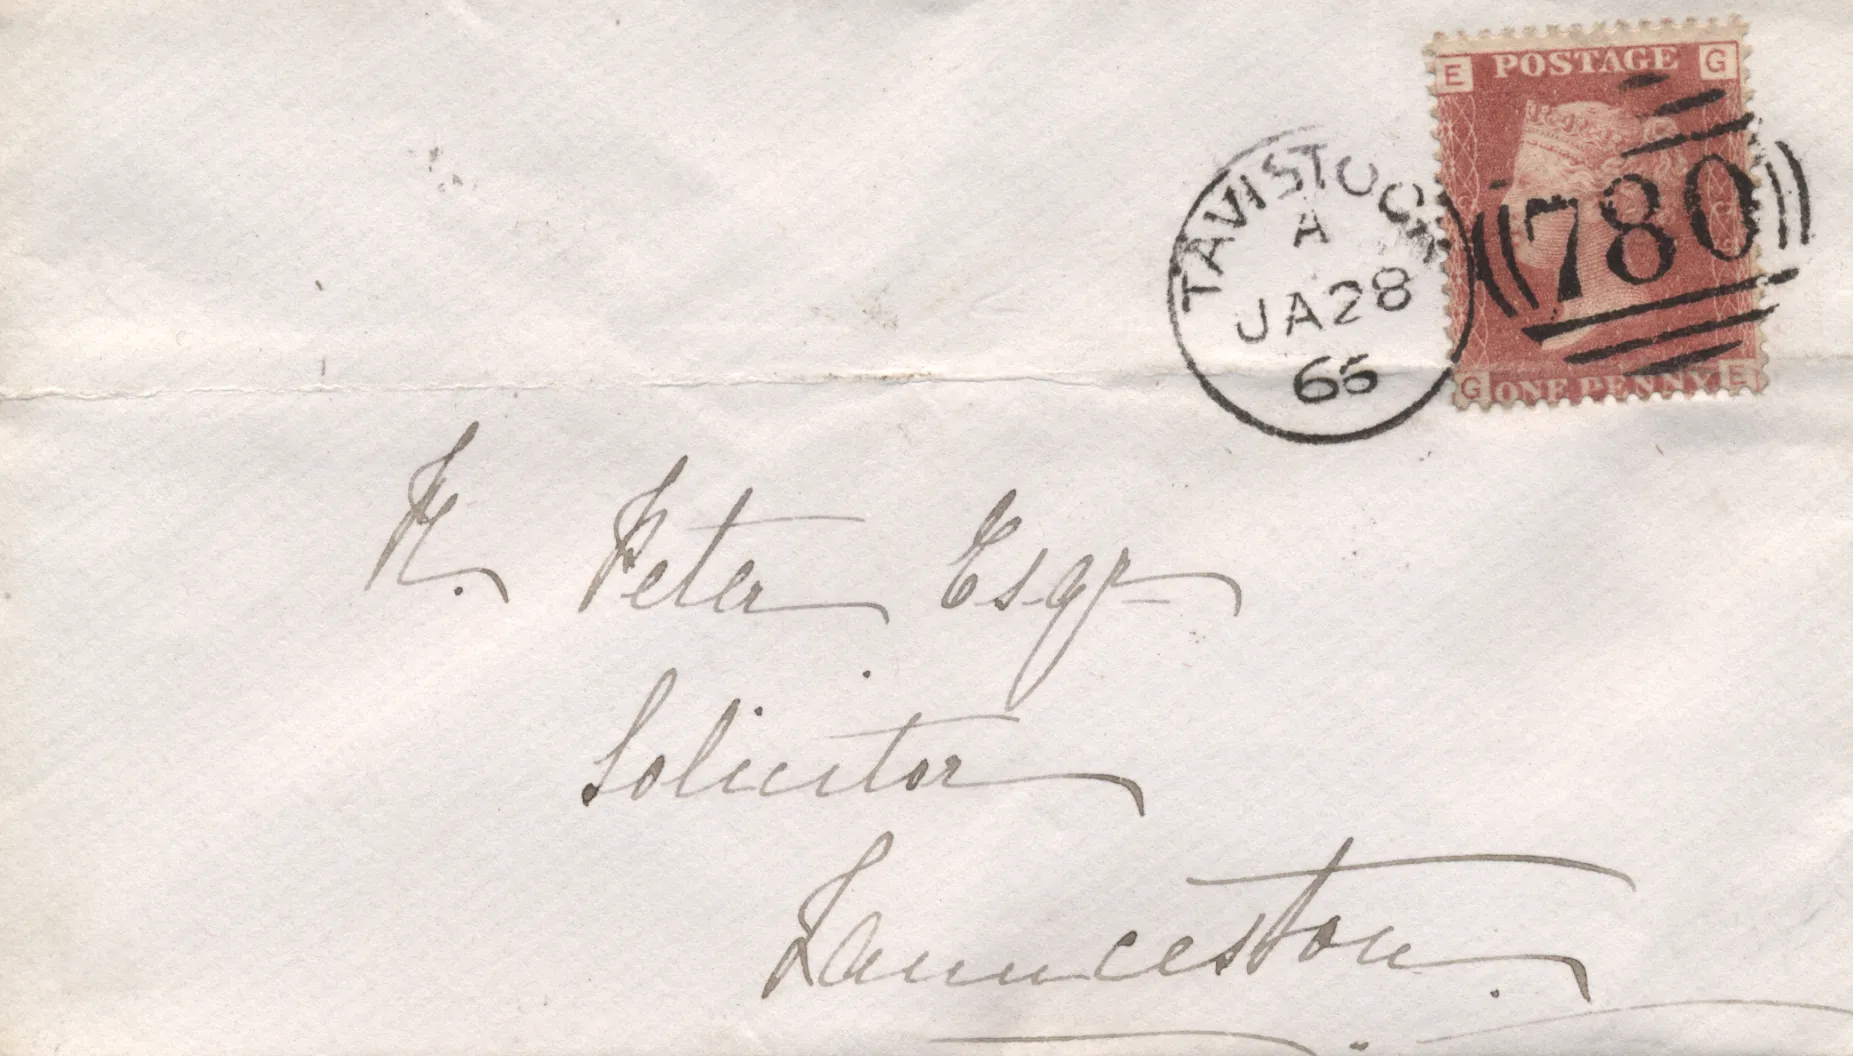 E POSTAGE G
TAVISTOCK
A
JA28
65
780
G ONE PENNY E
R. Peter Esqr
Solicitor
Launceston